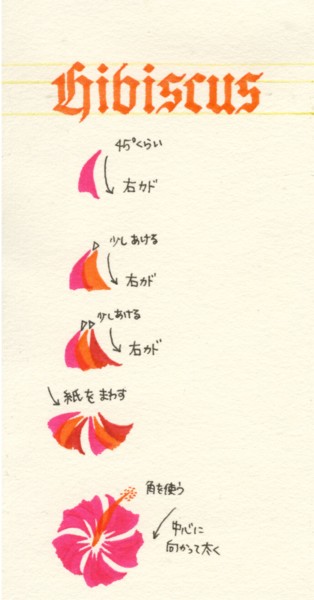 Hibiscus
45°くらい
右カド
少しあける
右カド
少しあける
右カド
紙をまわす
角を使う
中心に
向かって太く